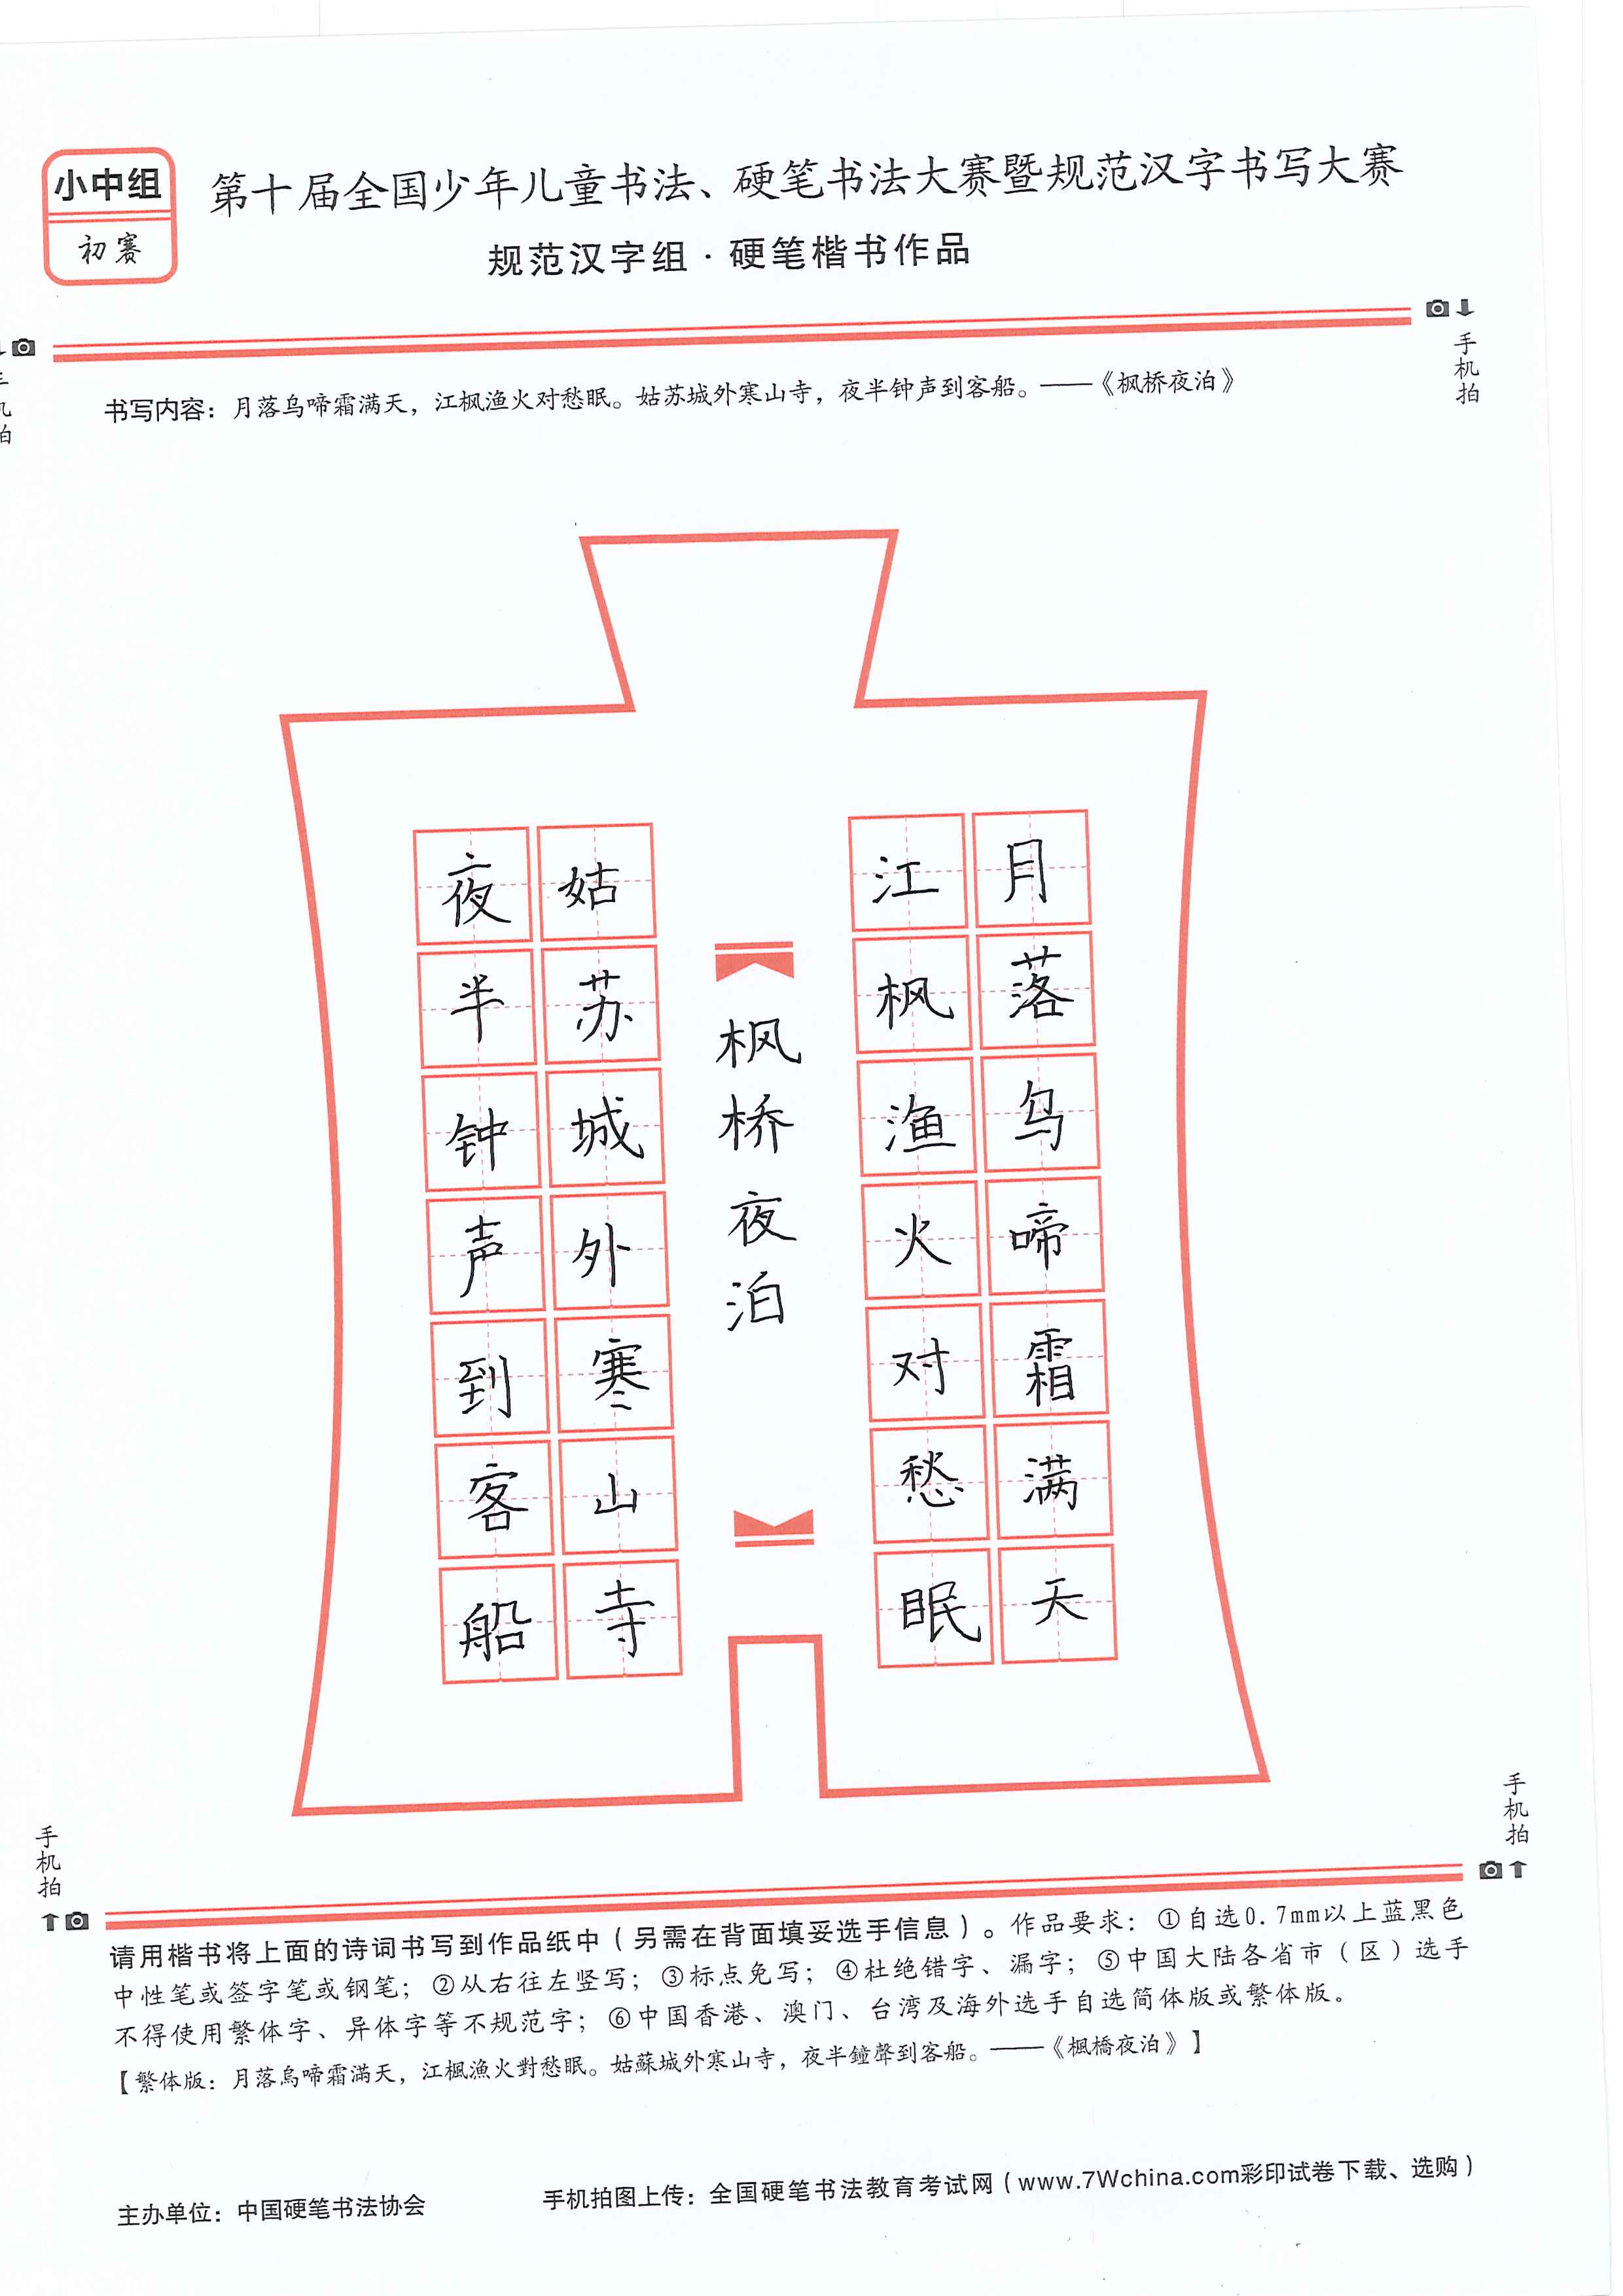 小中组
初赛
第十届全国少年儿童书法、硬笔书法大赛暨规范汉字书写大赛
规范汉字组·硬笔楷书作品
手机拍
机拍
书写内容：月落乌啼霜满天，江枫渔火对愁眠。姑苏城外寒山寺，夜半钟声到客船。——《枫桥夜泊》
月落乌啼霜满天
江枫渔火对愁眠
枫桥夜泊
姑苏城外寒山寺
夜半钟声到客船
手机拍
手机拍
请用楷书将上面的诗词书写到作品纸中（另需在背面填妥选手信息）。作品要求：①自选0.7mm以上蓝黑色
中性笔或签字笔或钢笔；②从右往左竖写；③标点免写；④杜绝错字、漏字；⑤中国大陆各省市（区）选手
不得使用繁体字、异体字等不规范字；⑥中国香港、澳门、台湾及海外选手自选简体版或繁体版。
【繁体版：月落烏啼霜滿天，江楓漁火對愁眠。姑蘇城外寒山寺，夜半鐘聲到客船。——《楓橋夜泊》】
主办单位：中国硬笔书法协会
手机拍图上传：全国硬笔书法教育考试网（www.7Wchina.com彩印试卷下载、选购）